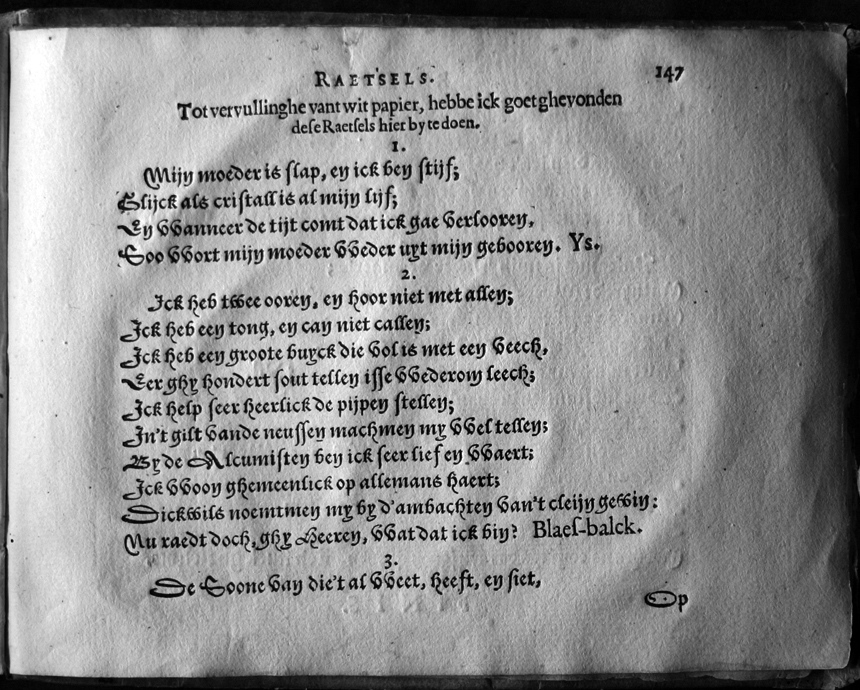 RAETSELS. 147
Tot vervullinghe vant wit papier, hebbe ick goet ghevonden
dese Raetsels hier by te doen.
1.
Mijn moeder is slap, en ick ben stijf;
Glijck als cristall is al mijn lijf;
En wanneer de tijt comt dat ick gae verlooren,
Soo wort mijn moeder weder uyt mijn gebooren. Ys.
2.
Ick heb twee ooren, en hoor niet met allen;
Ick heb een tong, en can niet callen;
Ick heb een groote buyck die vol is met een veech,
Eer ghy hondert sout tellen isse wederom leech;
Ick help seer heerlick de pijpen stellen;
In't gilt vande neussen machmen my wel tellen;
By de Alcumisten ben ick seer lief en waert;
Ick woon ghemeenlick op allemans haert;
Dickwils noemtmen my by d'ambachten van't cleijn gewin:
Nu raedt doch, ghy Heeren, wat dat ick bin? Blaes-balck.
3.
De Soone van die't al weet, heeft, en siet,
Op